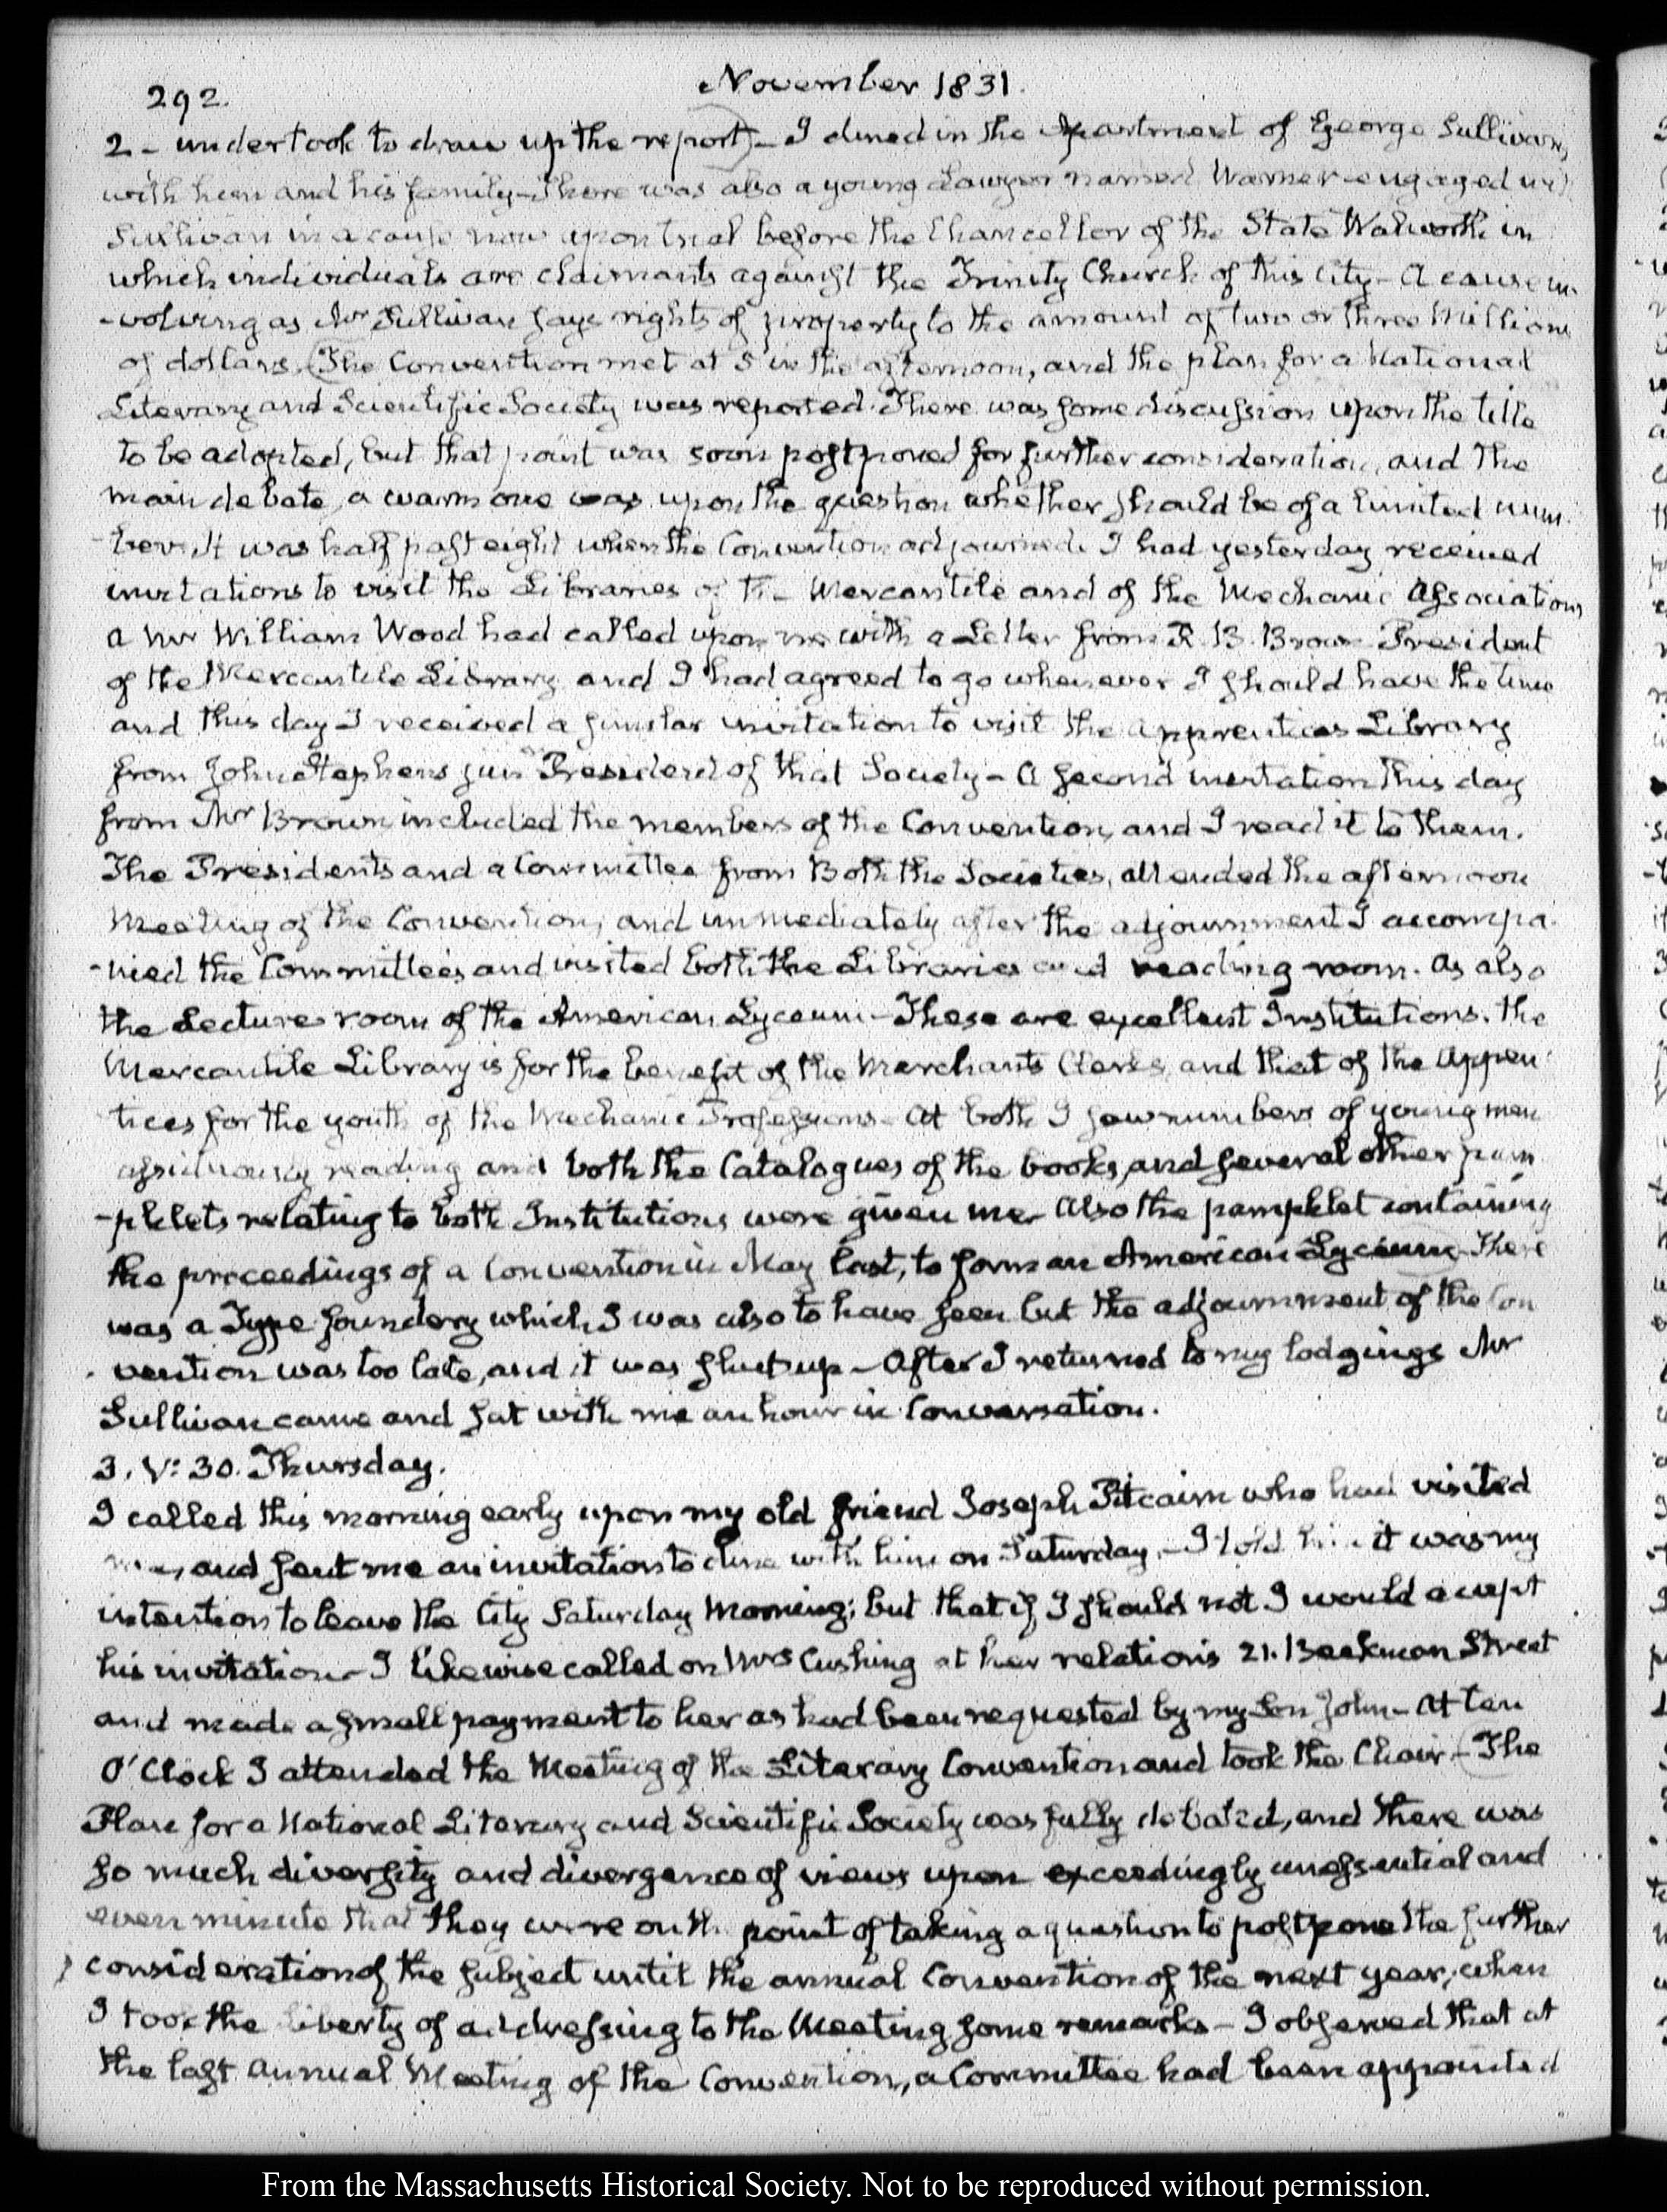 292.
November 1831.
2 - undertook to draw up the report) - I dined in the Apartment of George Sullivan,
with him and his family - There was also a young Lawyer named Warner engaged with
Sullivan in a cause now upon trial before the Chancellor of the State Walworth in
which individuals are claimants against the Trinity Church of this City - A cause in-
-volving as Mr Sullivan says rights of property to the amount of two or three Millions
of dollars. (The Convention met at 5 in the afternoon, and the plan for a National
Literary and Scientific Society was reported. There was some discussion upon the title
to be adopted, but that point was soon postponed for further consideration, and the
main debate, a warm one was upon the question whether should be of a limited num-
-ber. It was half past eight when the Convention adjourned. I had yesterday received
invitations to visit the Libraries of the Mercantile and of the Mechanic Associations,
a Mr William Wood had called upon me with a Letter from R. B. Brown President
of the Mercantile Library and I had agreed to go whenever I should have the time
and this day I received a similar invitation to visit the Apprentices Library
from John Stephens junr President of that Society - A second invitation this day
from Mr Brown, included the members of the Convention, and I read it to them.
The Presidents and a Committee from Both the Societies, attended the afternoon
Meeting of the Convention, and immediately after the adjournment I accompa-
-nied the Committees and visited both the Libraries and reading room. As also
the Lecture room of the American Lyceum - These are excellent Institutions. the
Mercantile Library is for the benefit of the Merchants Clerks, and that of the Appren-
tices for the youth of the Mechanic Professions - At both I saw numbers of young men
assiduously reading and both the Catalogues of the books, and several other pam-
-phlets relating to both Institutions were given me - Also the pamphlet containing
the proceedings of a Convention in May last, to form an American Lyceum - There
was a Type foundery which I was also to have seen but the adjournment of the Con
-vention was too late, and it was shut up - After I returned to my lodgings Mr
Sullivan came and sat with me an hour in Conversation.
3. V: 30. Thursday.
I called this morning early upon my old friend Joseph Pitcairn who had visited
me, and sent me an invitation to dine with him on Saturday. - I told him it was my
intention to leave the City Saturday Morning; but that if I should not I would accept
his invitation - I likewise called on Mrs Cushing at her relations 21. Beekman Street
and made a small payment to her as had been requested by my Son John - At ten
O'Clock I attended the Meeting of the Literary Convention and took the Chair - (The
Plan for a National Literary and Scientific Society was fully debated, and there was
so much diversity and divergence of views upon exceedingly unessential and
even minute that they were on the point of taking a question to postpone the further
consideration of the subject until the annual Convention of the next year; when
I took the liberty of addressing to the Meeting some remarks - I observed that at
the last Annual Meeting of the Convention, a Committee had been appointed
From the Massachusetts Historical Society. Not to be reproduced without permission.